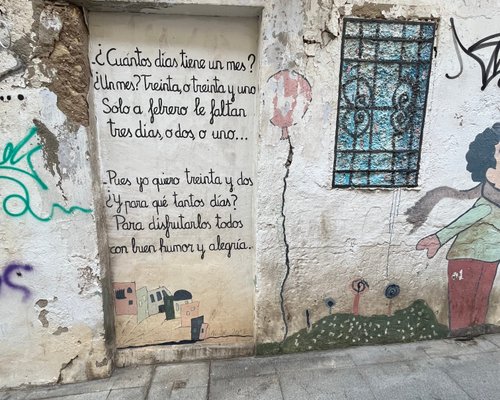 ¿Cuántos días tiene un mes?
¿Un mes? Treinta, o treinta y uno
Solo a febrero le faltan
tres días, o dos o uno...
Pues yo quiero treinta y dos
¿Y para qué tantos días?
Para disfrutarlos todos
con buen humor y alegría.